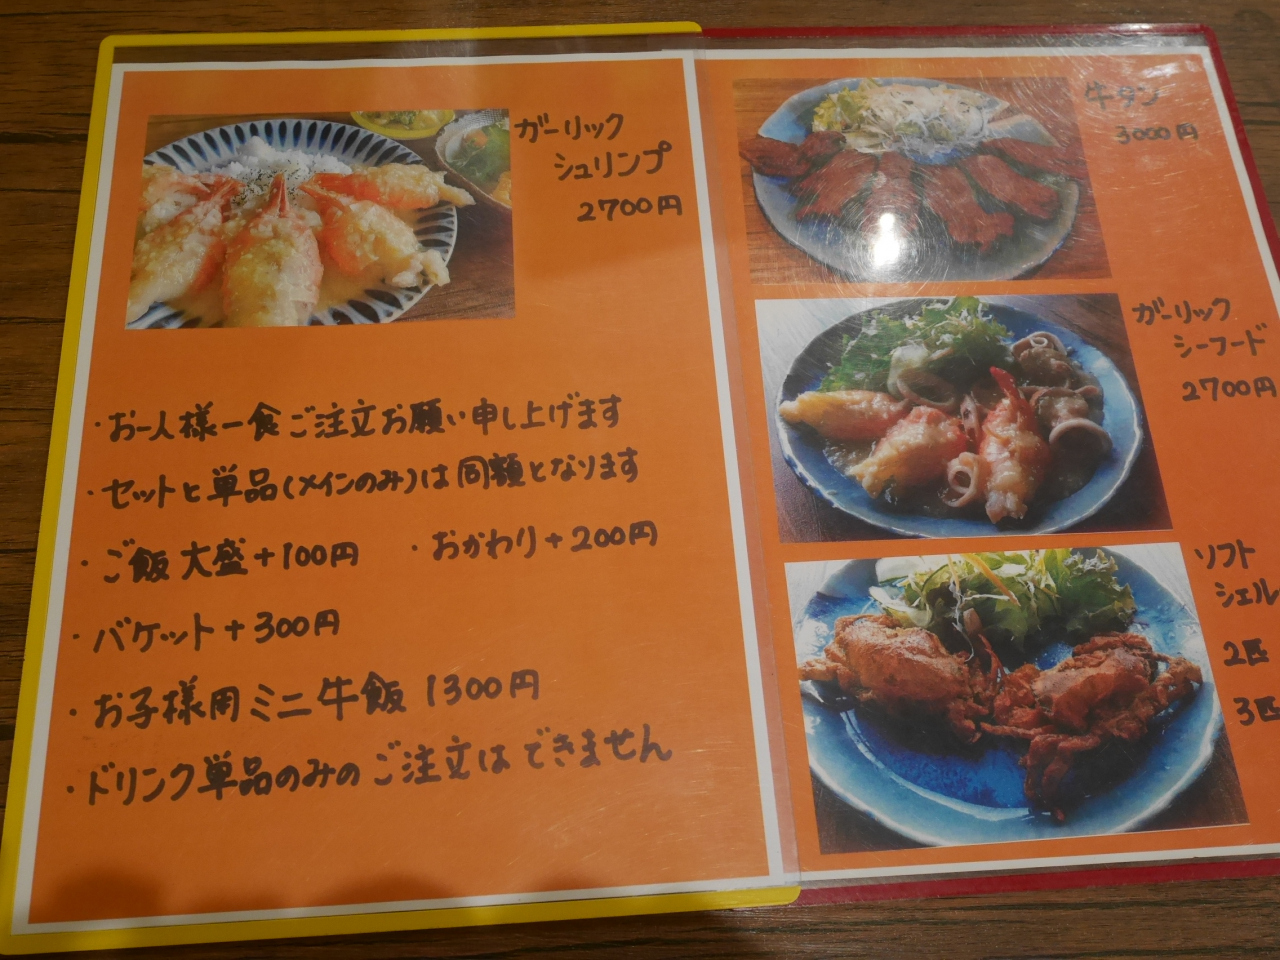 ガーリック
シュリンプ
2700円
・お一人様一食ご注立お願い申し上げます
・セットと単品(メインのみ)は同額となります
・ご飯大盛+100円 ・おかわり+200円
・バケット+300円
・お子様用ミニ牛飯 1300円
・ドリンク単品のみのご注立はできません
牛タン
3000円
ガーリック
シーフード
2700円
ソフト
シェル
2匹
3匹